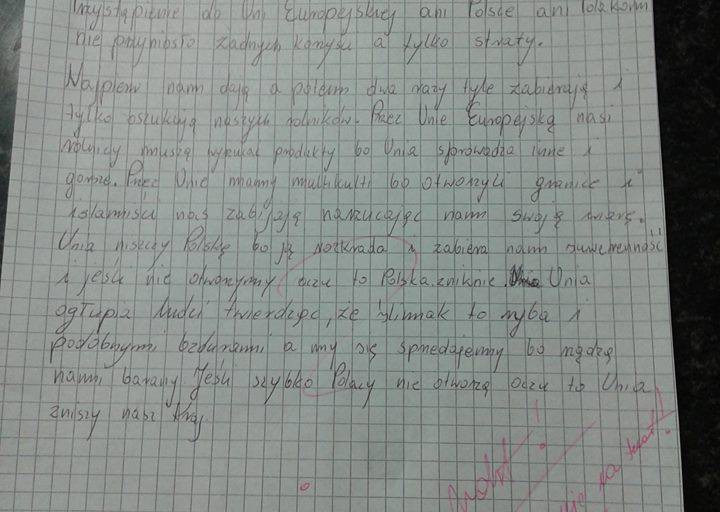 Przystąpienie do Uni Europejskiej ani Polsce ani Polakom
nie przyniosło żadnych korzyści a tylko straty.
Najpierw nam dają a potem dwa razy tyle zabierają i
tylko oszukują naszych rolników. Przez Unie Europejską nasi
rolnicy muszą produkty bo Unia sprowadza inne i
gorsze. Przez Unie mamy multikulti bo otworzyli granice i
islamiści nas zabijają narzucając nam swoją wiarę.
Unia niszczy Polskę bo ją rozkrada i zabiera nam suwerenność
i jeśli nie otworzymy oczu to Polska zniknie. Unia
ogłupia ludzi twierdząc, że ślimak to ryba i
podobnymi bzdurami a my się sprzedajemy bo rządzą
nami barany Jeśli szybko Polacy nie otworzą oczu to Unia
zniszy nasz kraj
na temat!